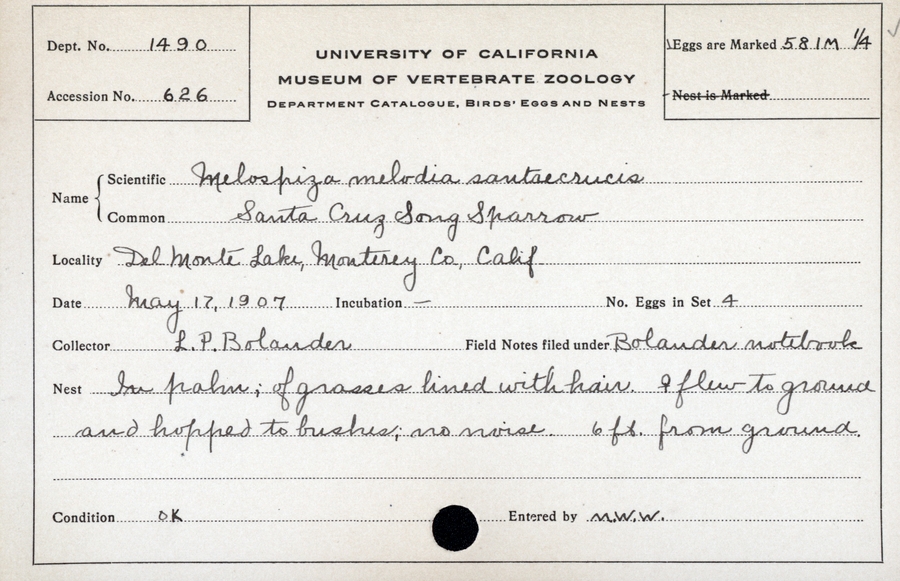 Dept. No. 1490
Accession No. 626
UNIVERSITY OF CALIFORNIA
MUSEUM OF VERTEBRATE ZOOLOGY
DEPARTMENT CATALOGUE, BIRDS' EGGS AND NESTS
Eggs are Marked 581M 1/4
Nest is Marked
Name
Scientific Melospiza melodia santaecrucis
Common Santa Cruz Song Sparrow
Locality Del Monte Lake, Monterey Co, Calif
Date May 17, 1907 Incubation — No. Eggs in Set 4
Collector L.P. Bolander Field Notes filed under Bolander notebook
Nest In palm; of grasses lined with hair. ♀ flew to ground
and hopped to bushes; no noise. 6 ft. from ground.
Condition OK Entered by M.W.W.